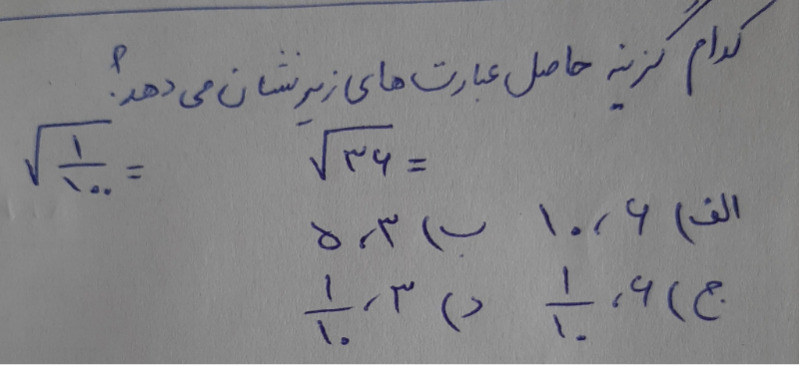 کدام گزینه حاصل عبارت های زیر نشان می دهد؟
√۳۶ = √۱/۱۰۰ =
الف) ۶، ۱۰ ب) ۳، ۵
ج) ۶، ۱/۱۰ د) ۳، ۱/۱۰